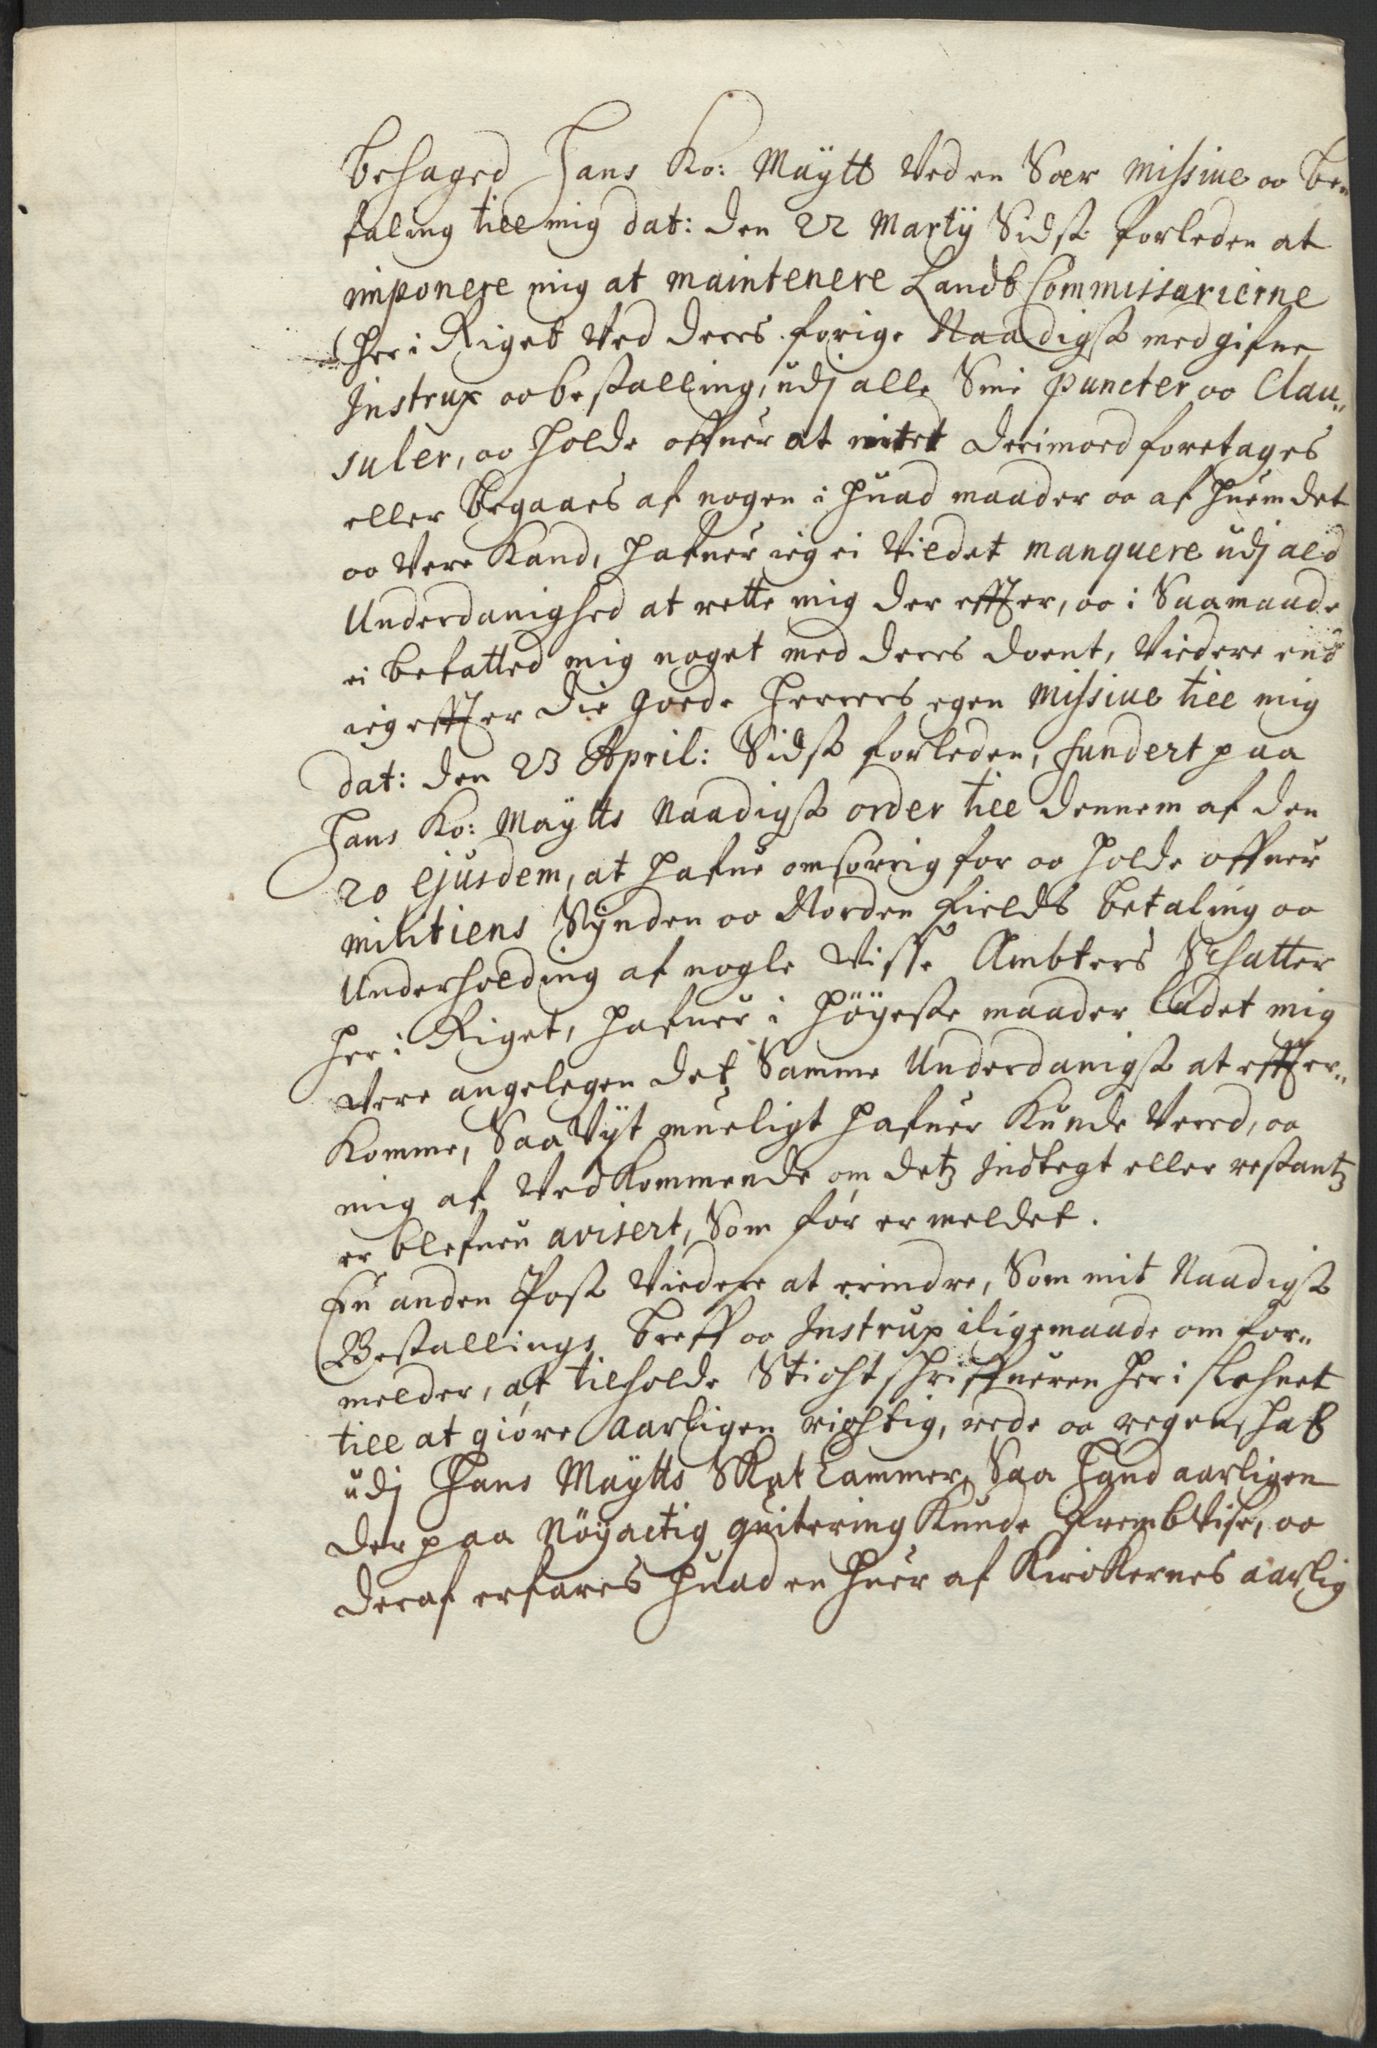 behaged Hans Ko: Maÿtt Ved en Sær Missive oc be„
faling till mig dat: den 22 Martÿ Sidst forleden at
imponere mig at maintenere Landb Commissarierne
her i Riget Ved deres forige Naadigst med gifne
Instrux oc bestalling, udj alle Sine puncter oc Clau„
suler, oc holde offuer at intet derimoed foretages
eller begaaes af nogen i huad maader oc af huem det
oc Vere Kand, hafuer ieg ei Vildet manquere udj ald
Underdanighed at rette mig der effter, oc i Saamaade
ei befatted mig noget med deres doent, Viedere end
ieg effter die goede Herrers egen Missive till mig
dat: den 23 April: Sidst forleden, fundert paa
Hans Ko: Maÿtts Naadigst order till dennem af den
20 Ejusdem, at hafue omsorrig for oc holde offuer
militiens Sÿnden oc Norden Fields betaling oc
Underholding af nogle Visse Ambters Schatter
her i Riget, hafuer i höÿeste maader ladet mig
Vere angelegen det Samme Underdanigst at effter„
Komme, Saa Vÿt mueligt hafuer Kunde Vered, oc
mig af Vedkommende om detz Indtegt eller restantz
er blefuen avisert, Som før er meldet.
En anden Post Viedere at erindre, Som mit Naadigst
Bestallings breff oc Instrux iligemaade om for„
melder, at tilholde Stichtschriffueren her i Lehnet
till at giöre Aarligen richtig, rede oc regenschaf
udj Hans Maÿtts Skat Cammer, Saa Hand aarligen
der paa Nöÿactig quitering Kunde frembVise, oc
deraf erfares huad en huer af Kirckernes aarlig